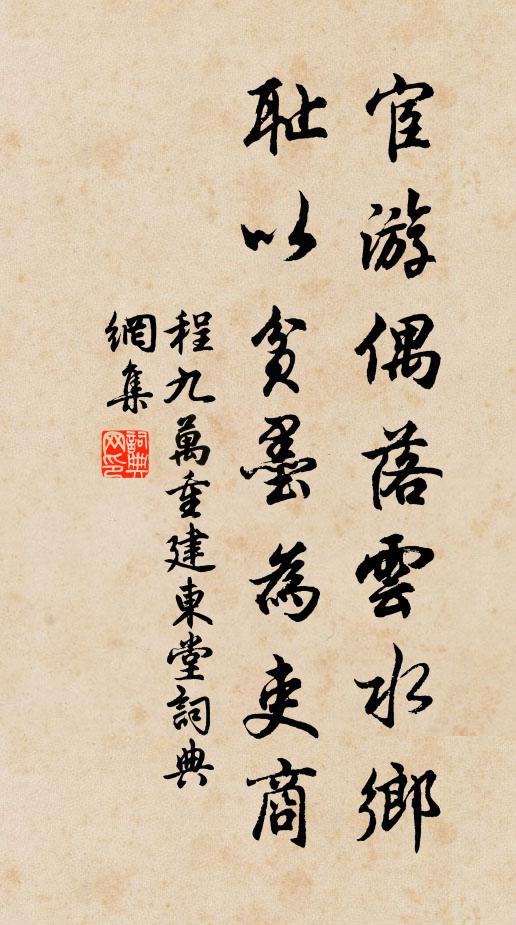 宦游偶落雲水鄉
耻以貧墨為吏商
程九萬重建東堂詞典
網集
詞典
网印